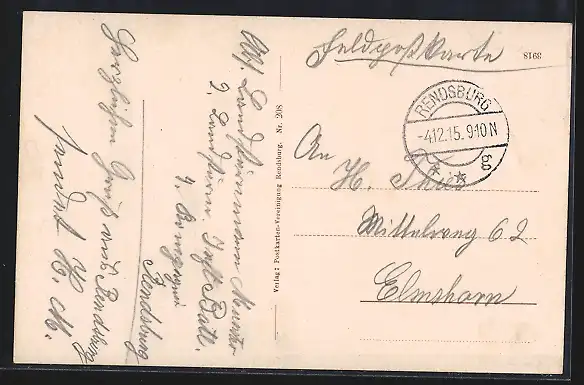 Feldpostkarte
8918
RENDSBURG
-4.12.15.9-10N
* * 6a
An
H. Thies
Mittelweg 62
Elmshorn
Verlag: Postkarten-Vereinigung Rendsburg. Nr. 208
Abs. Landsturmmann
2. Landsturm Inft. Batl.
4. Kompagnie
Rendsburg
Herzlichen Gruß aus Rendsburg
sendet H. M.